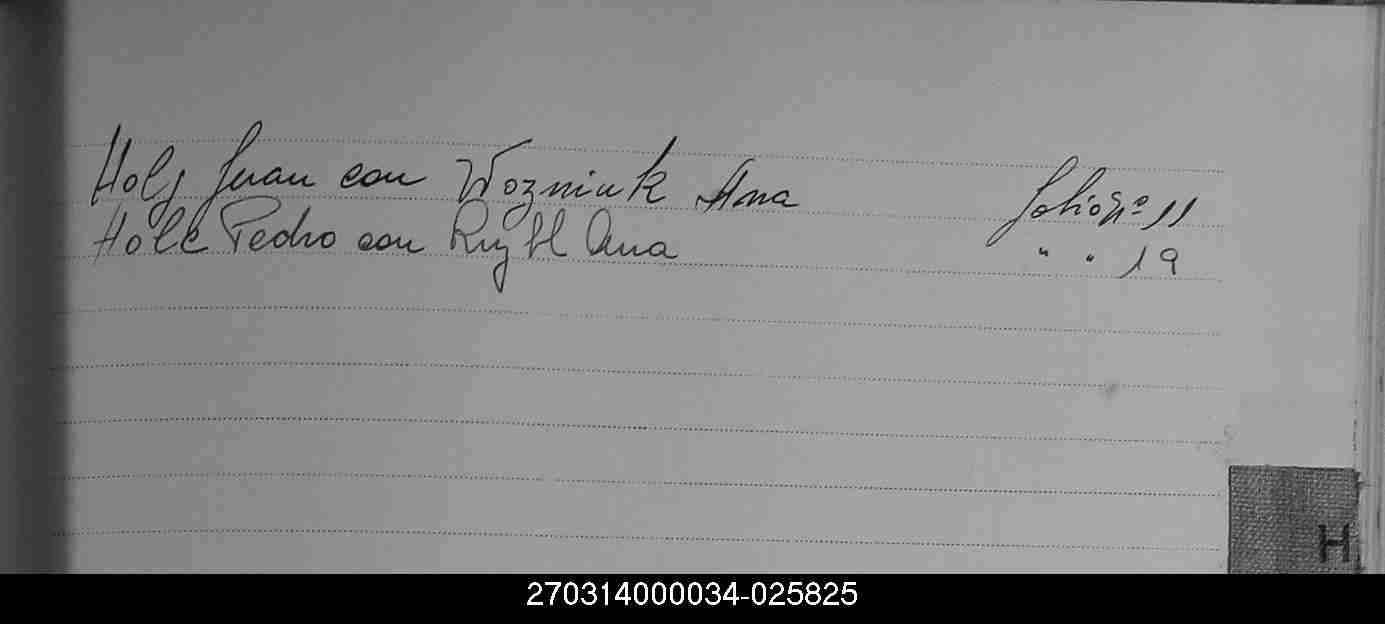 Juan con Wozniuk Ana Folio Nº 11
Pedro con Ana " " 19
H
270314000034-025825